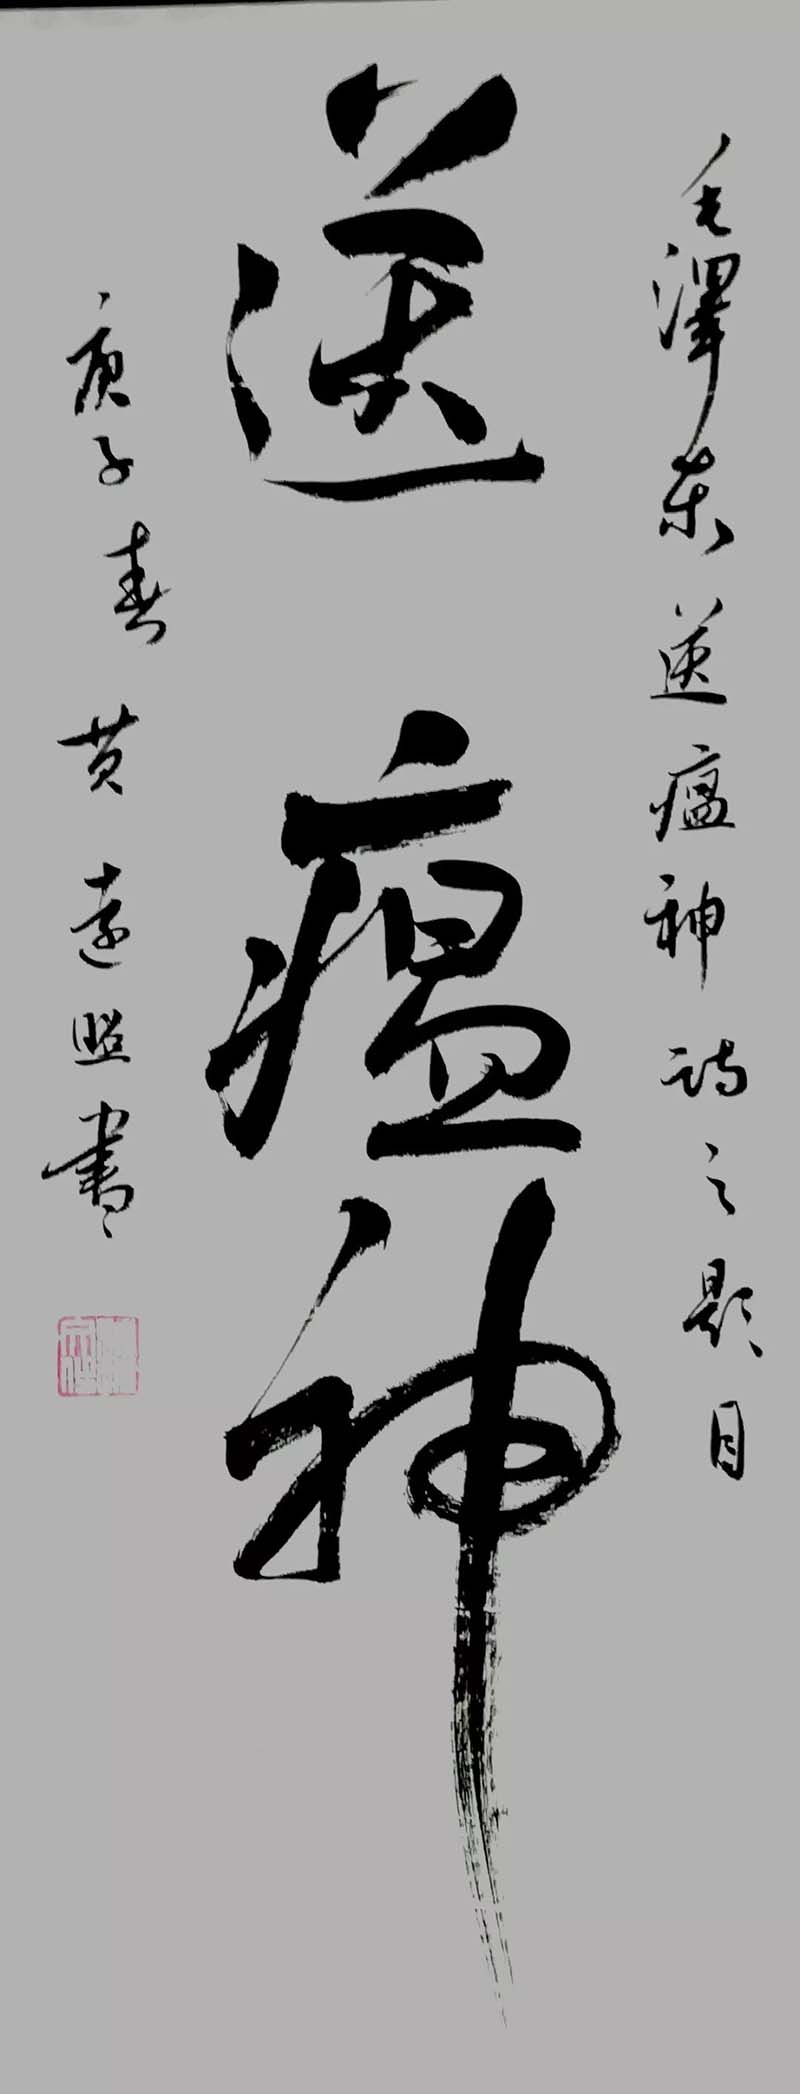 毛澤东送瘟神詩之题目
送瘟神
庚子春黄远照書